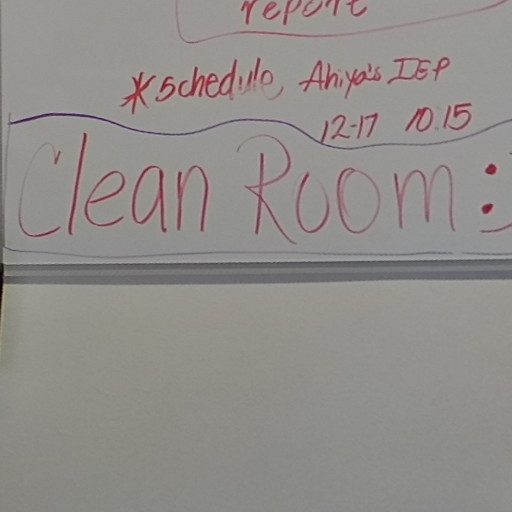 report
*schedule Ahiya's IEP
12-17 10:15
Clean Room :)